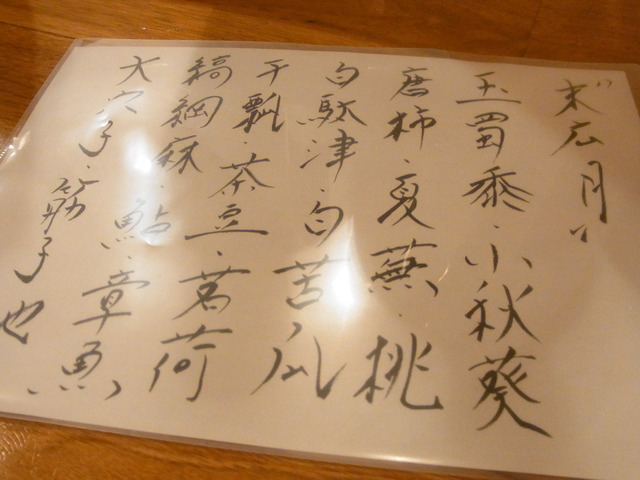 末広月〻
玉蜀黍・小秋葵
唐柿・夏蕪・桃
白駄津・白苦瓜
干瓢・茶豆・茗荷
縞鋼麻・鮎
大穴子・章魚
筋子也